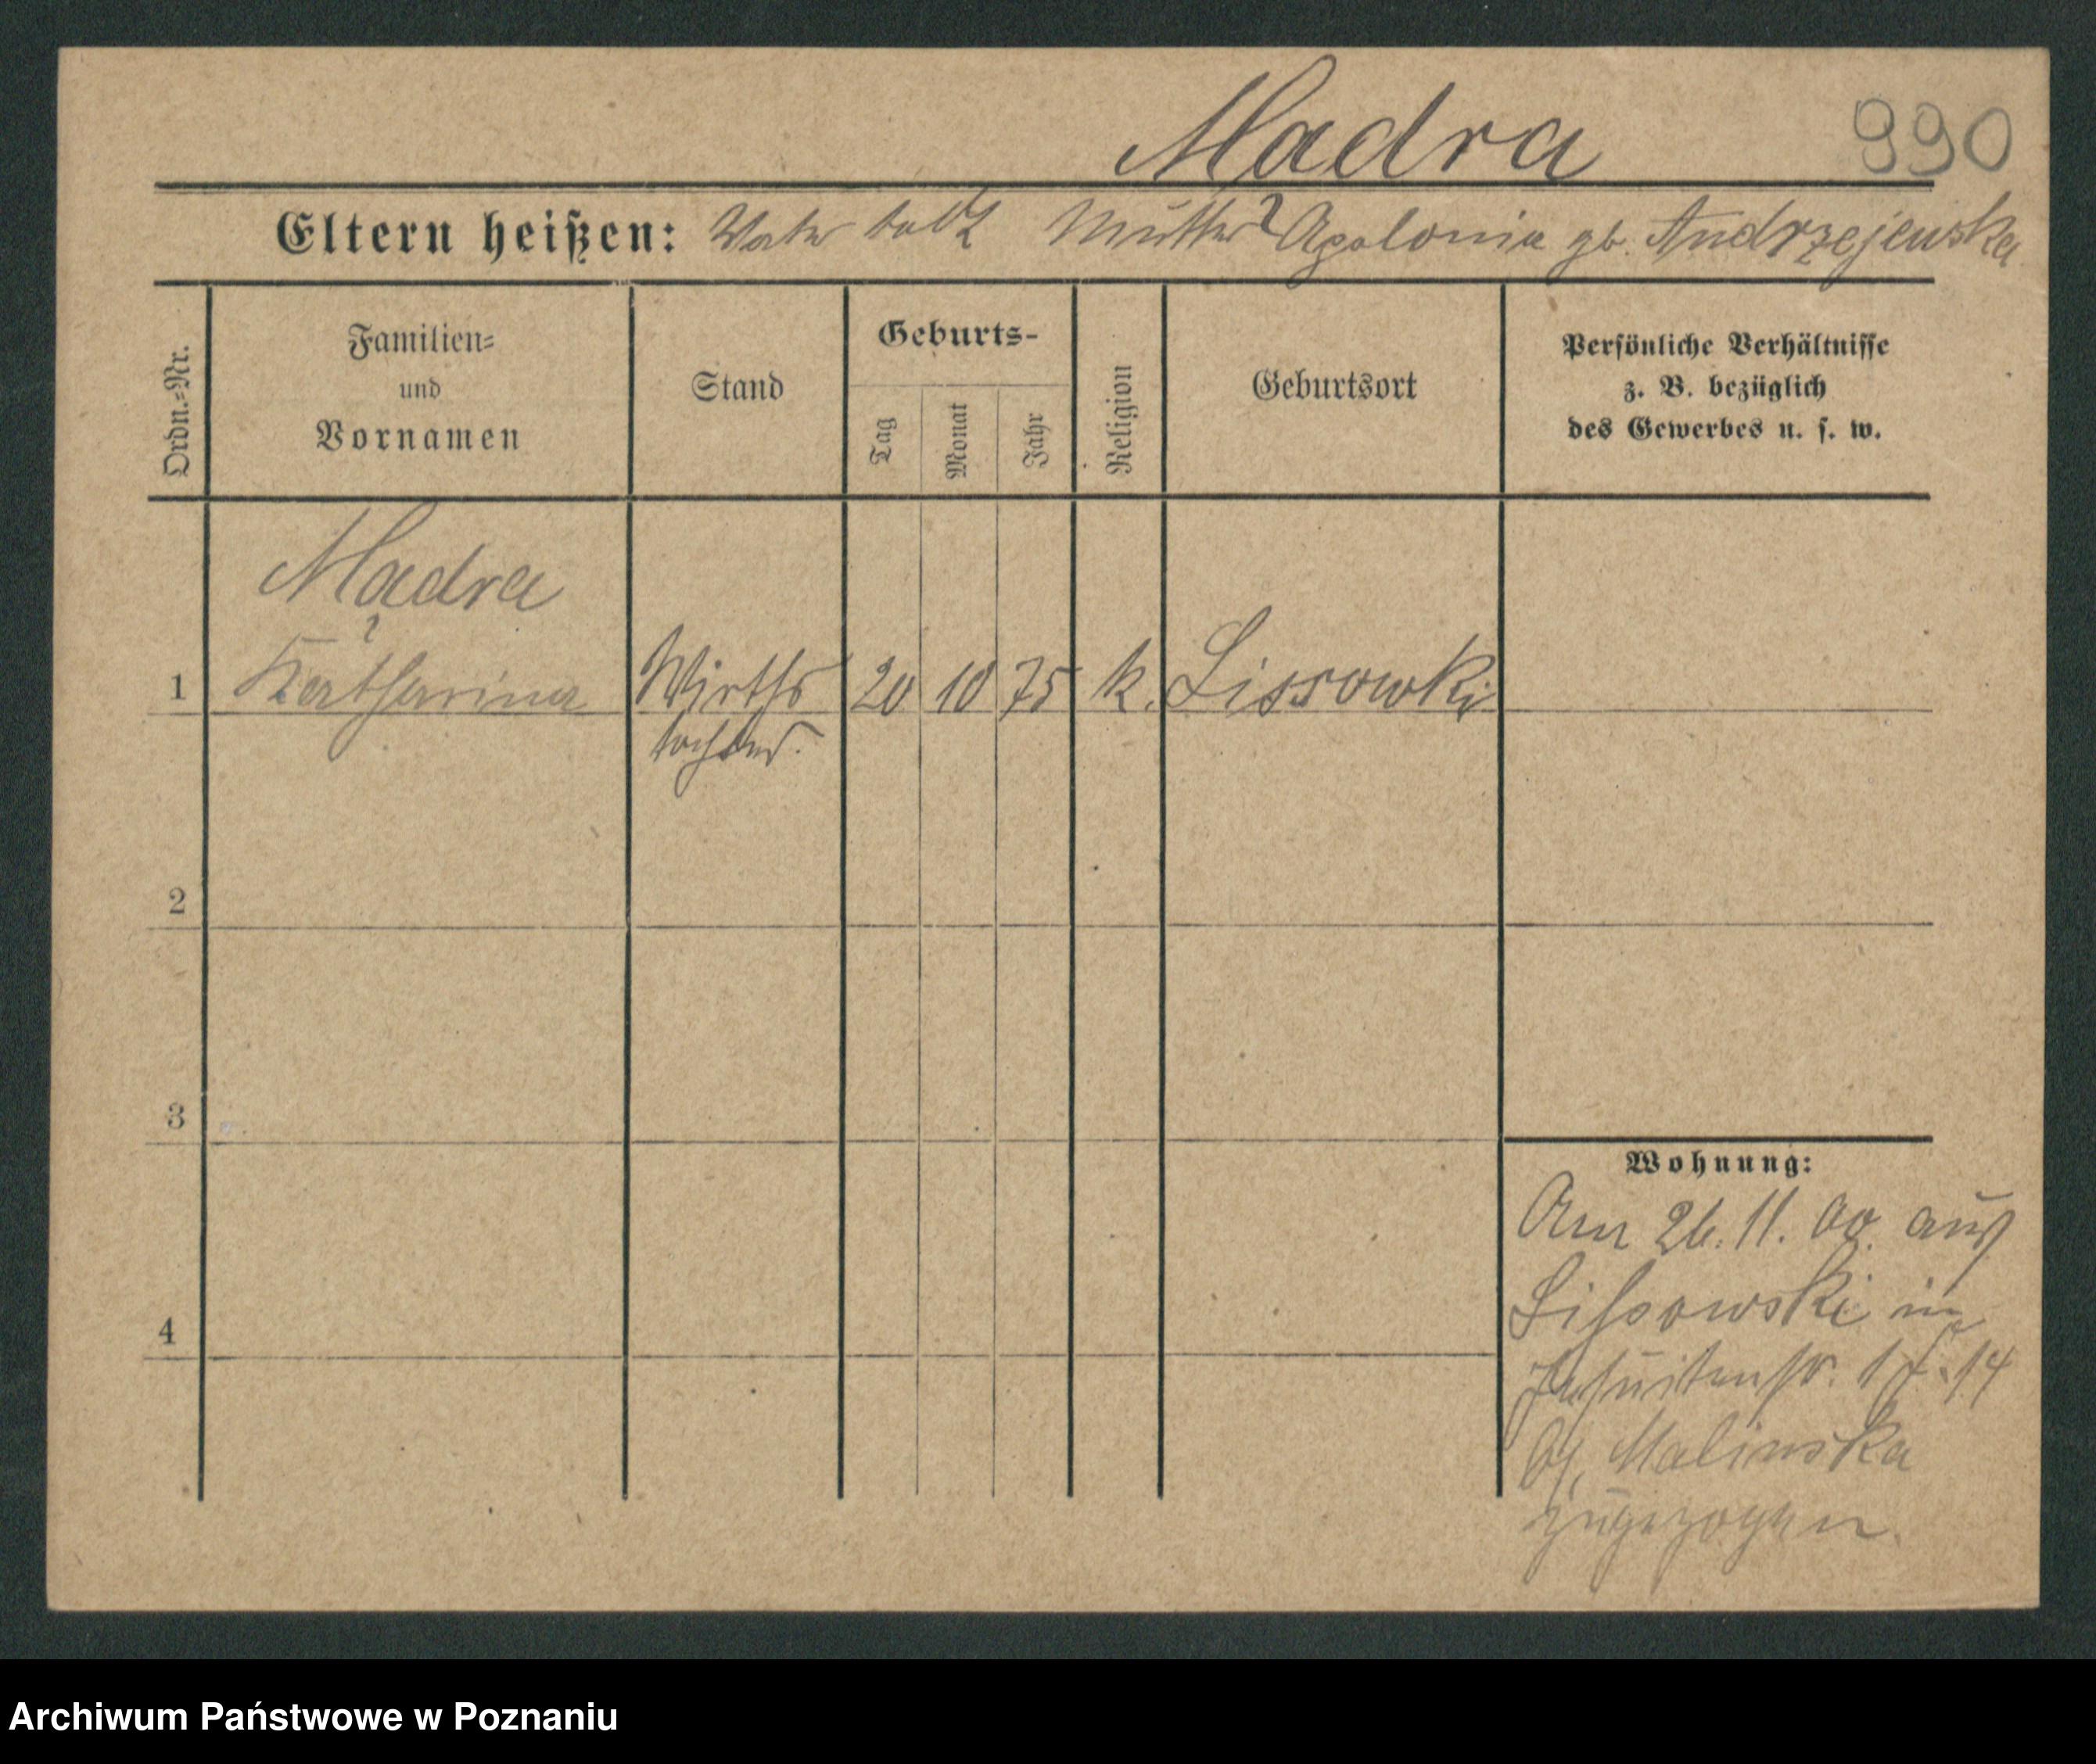 Madra
990
Eltern heißen: Vater todt Mutter Apolonia gb. Andrzejewska
Ordn.-Nr.
Familien-
und
Vornamen
Stand
Geburts-
Tag
Monat
Jahr
Religion
Geburtsort
Persönliche Verhältnisse
z. B. bezüglich
des Gewerbes u. s. w.
Madra
1 Katharina Wirths 20 10 75 k. Lissowki
tochter.
2
3
4
Wohnung:
Am 26. 11. 00. aus
Lissowski in
Jesuitenstr. 14
Malinska
zugezogen.
Archiwum Państwowe w Poznaniu